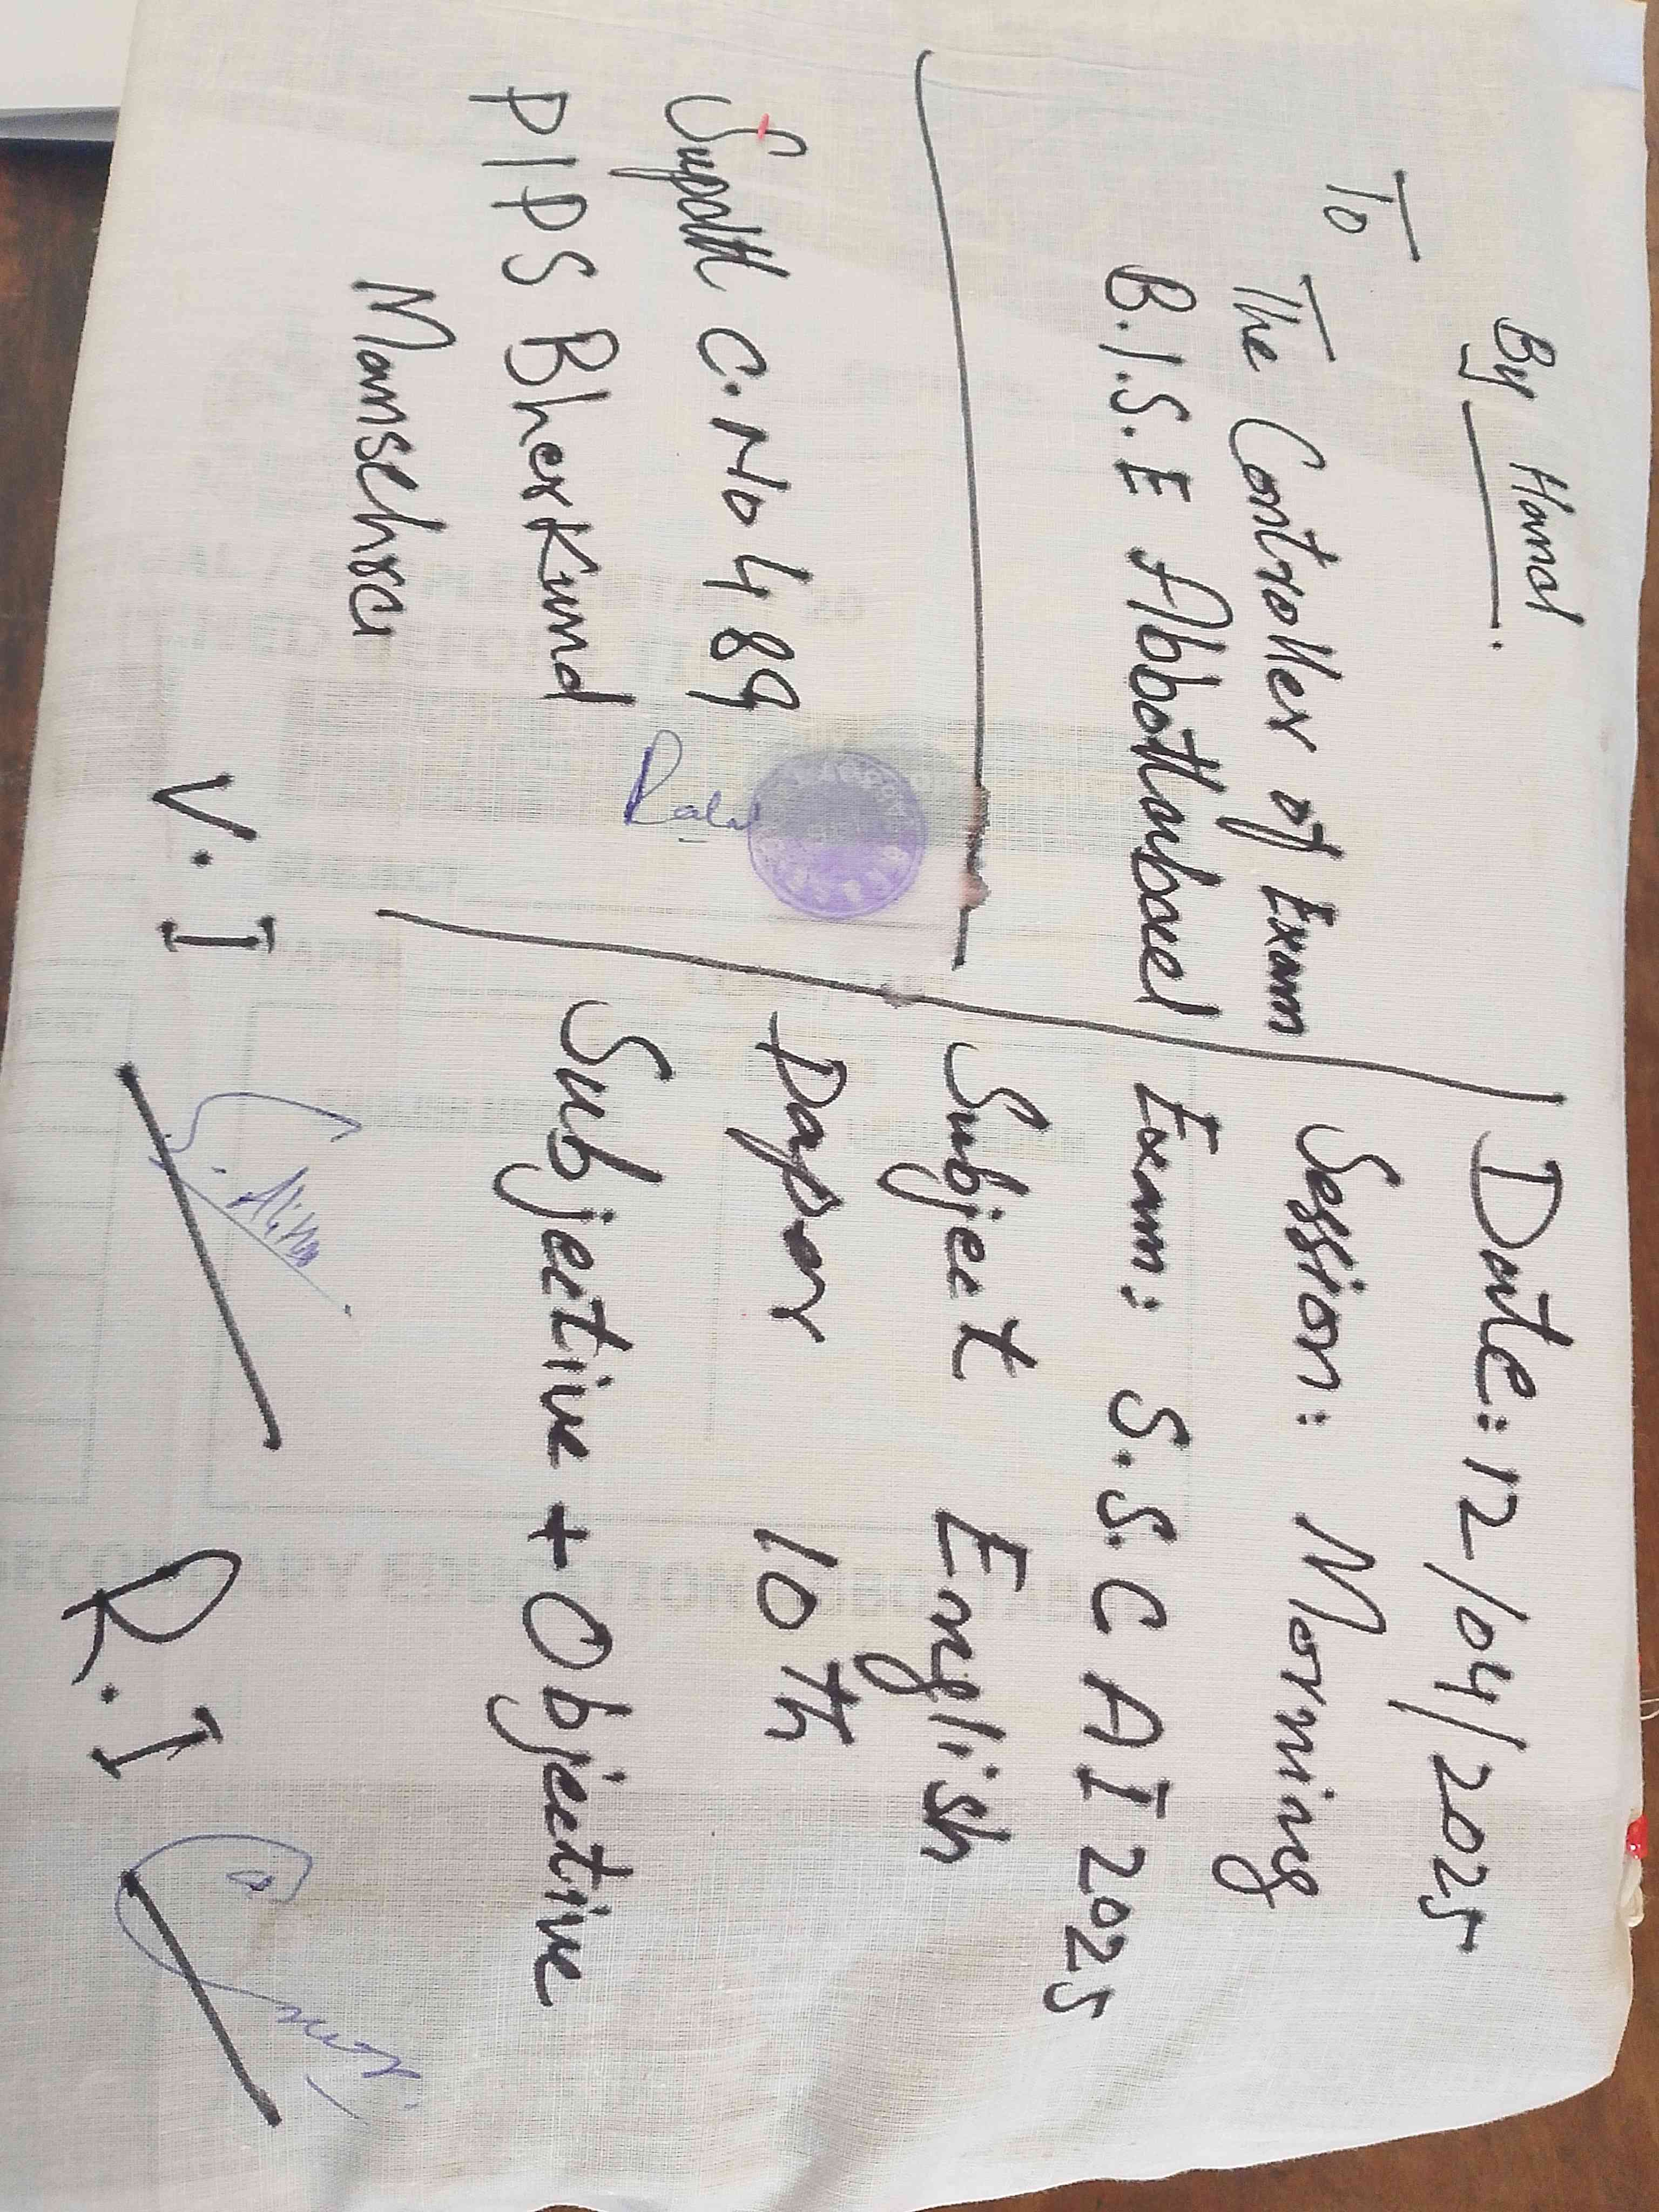 By Hand
To
The Controller of Exam
B.I.S.E Abbottabad
Supdtt C.No 489
PIPS Bherkund
Mansehra
Date: 12/04/2025
Session: Morning
Exam: S.S.C A I 2025
Subject English
Paper 10th
Subjective + Objective
V.I
R.I